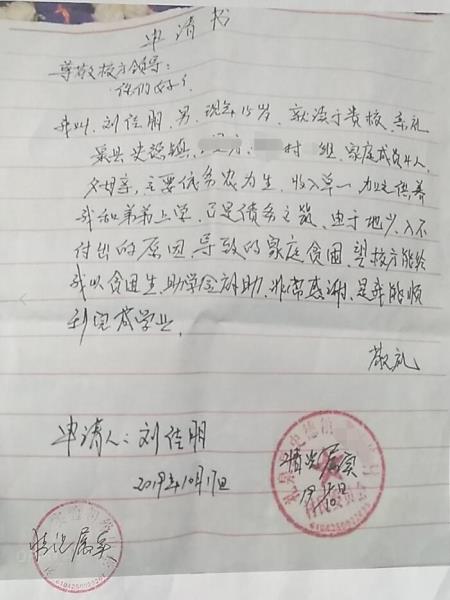 申请书
尊敬校方领导:
你们好!
我叫刘佳明,男,现年15岁,就读于贵校,系礼
泉县史德镇 村 组,家庭成员4人,
父母亲,主要依务农为生,收入单一,加之供养
我和弟弟上学,已是债务之家,由于地少,入不
付出的原因,导致的家庭贫困,望校方能给
我以贫困生,助学金补助,非常感谢,是我能顺
利完成学业。
敬礼
申请人:刘佳明
2019年10月17日
情况属实
情况属实